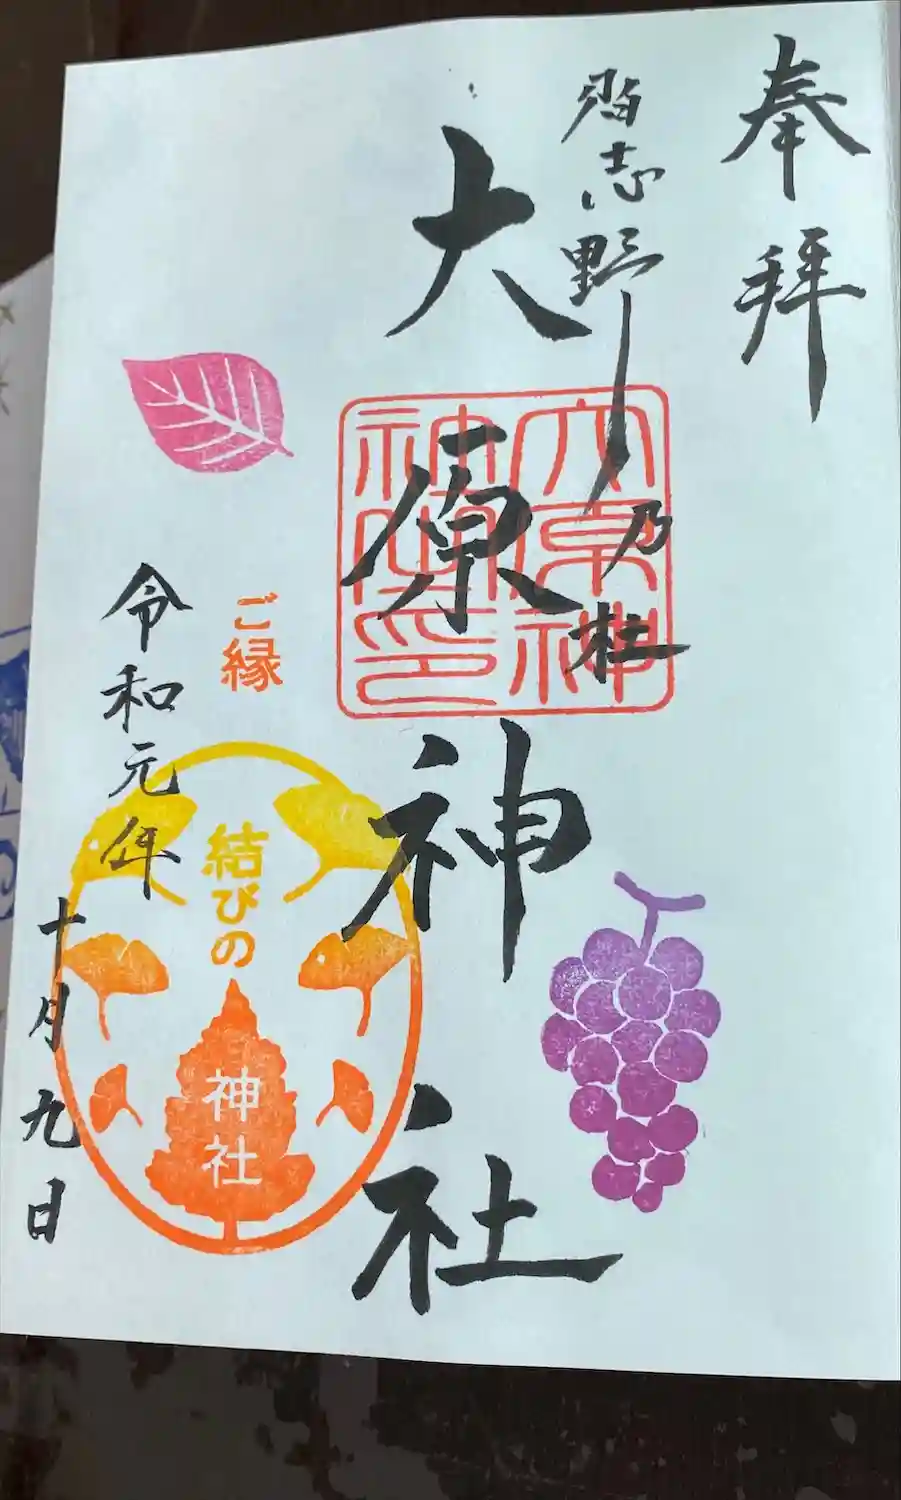 奉拝
習志野乃杜
大原神社
大原神社神璽印
ご縁
結びの
神社
令和元年
十月九日